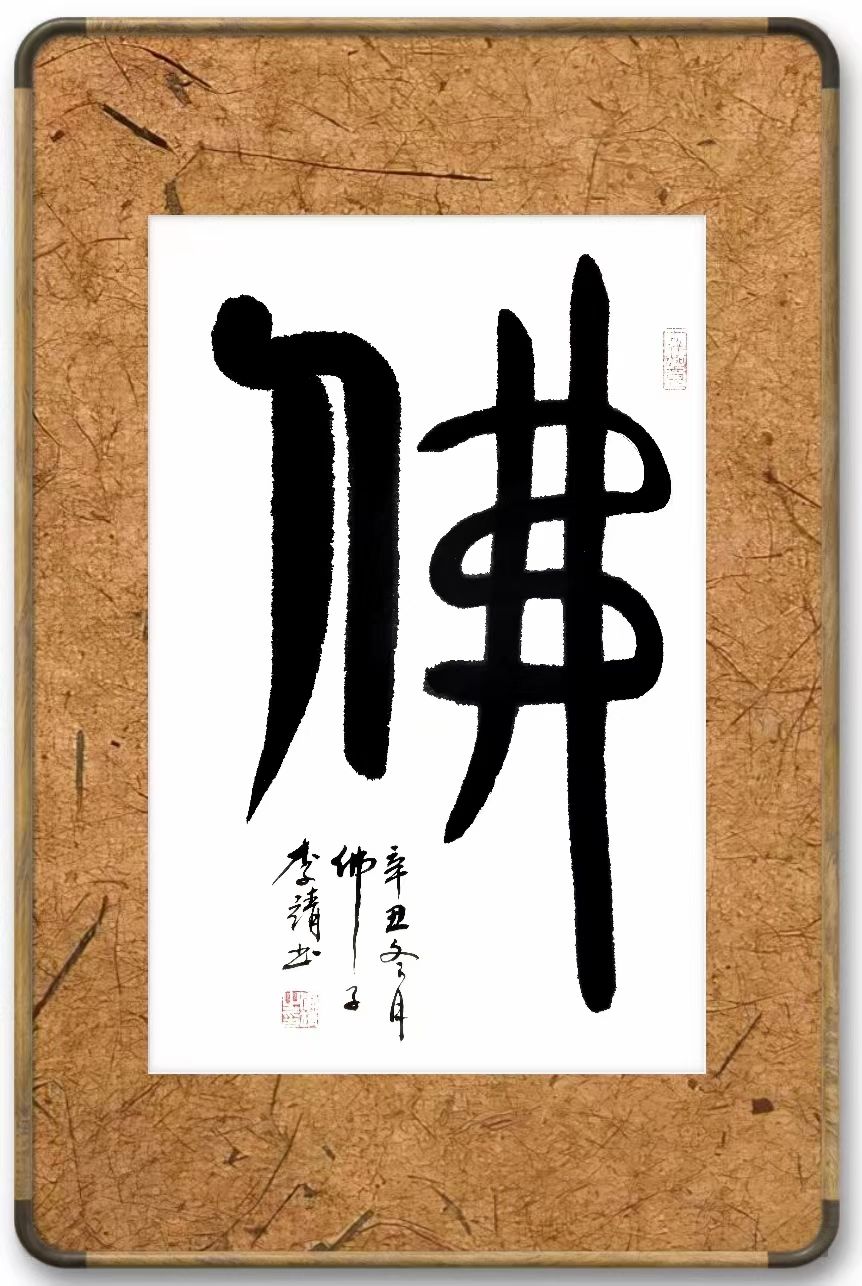 佛
辛丑冬月
佛子
李靖书